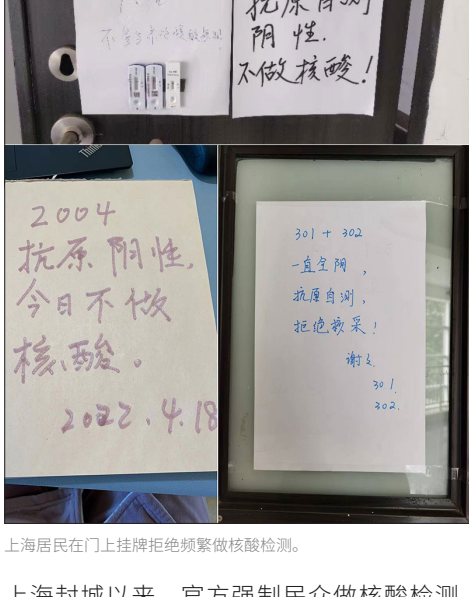 抗原自测
阴性.
不做核酸！
2004
抗原阴性,
今日不做
核酸。
2022.4.18
301 + 302
一直全阴，
抗原自测，
拒绝核采！
谢谢
301.
302.
上海居民在门上挂牌拒绝频繁做核酸检测。
上海封城以来，官方强制民众做核酸检测